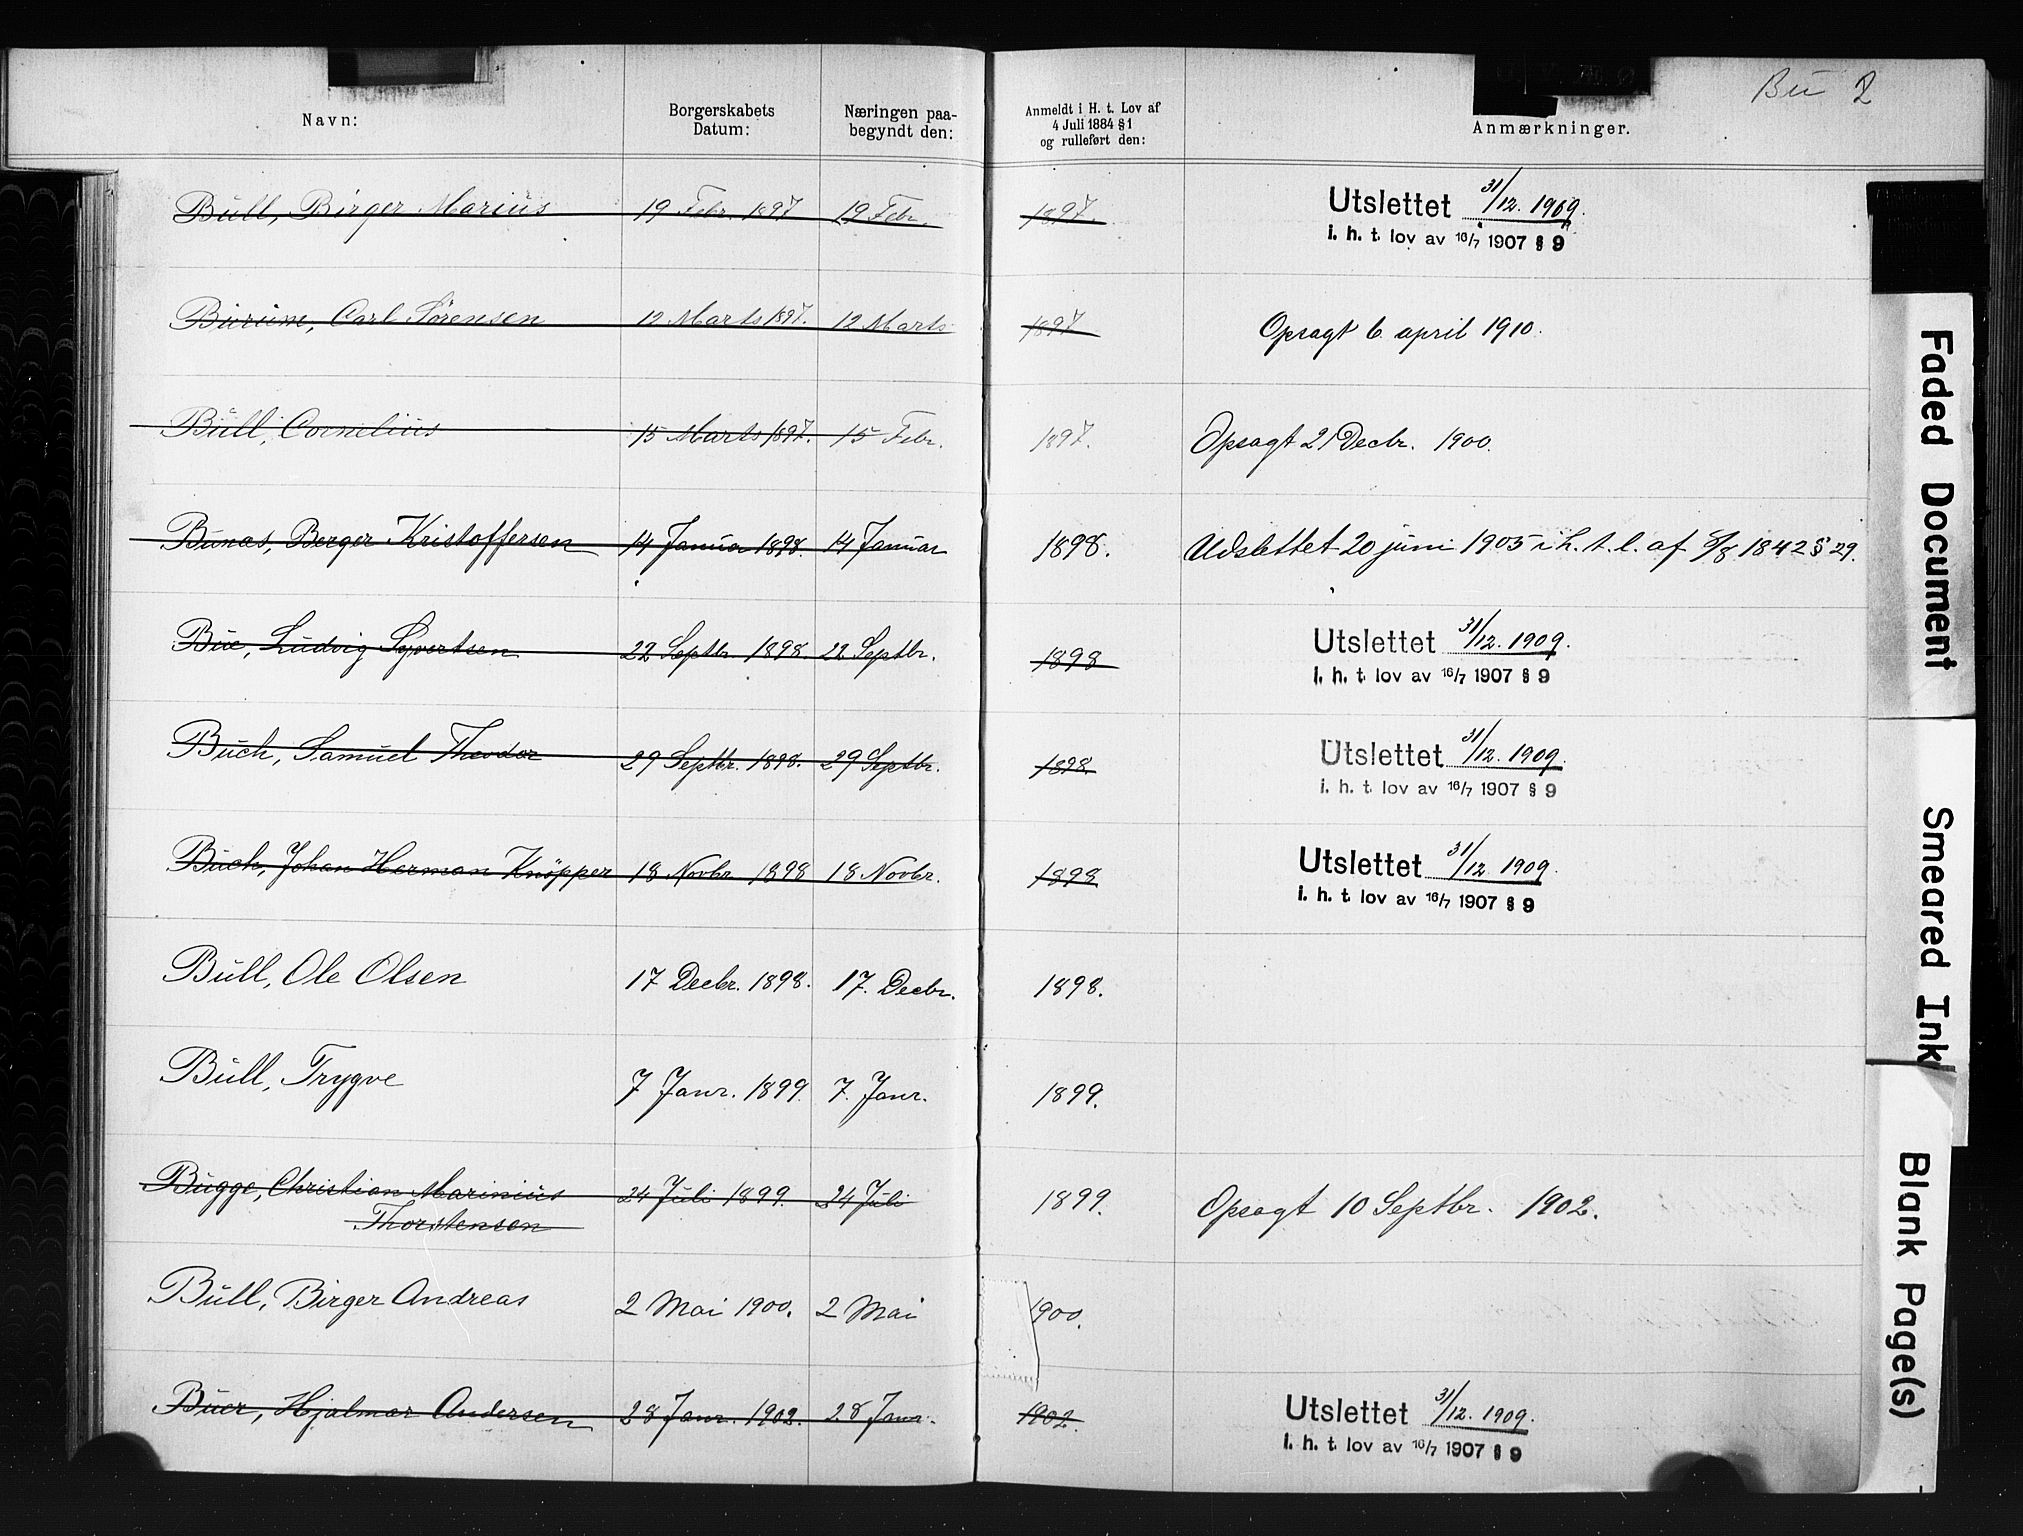 Bu 2
Navn: Borgerskabets Datum: Næringen paa- begyndt den: Anmeldt i H. t. Lov af 4 Juli 1884 § 1 og rulleført den: Anmærkninger.
Bull, Birger Marius 19 Febr. 1897 19 Febr. 1897. Utslettet 31/12. 1909.
i. h. t. lov av 16/7 1907 § 9
Carl Sørensen 12 Marts 1897. 12 Marts 1897 Opsagt 6 april 1910.
Bull, Cornelius 15 Marts 1897. 15 Febr. 1897. Opsagt 21 Decbr. 1900.
Bunæs, Berger Kristoffersen 14 Januar 1898. 14 Januar 1898. Udslettet 20 juni 1905 i h. t. l. af 8/8 1842 § 29.
Bue, Ludvig Syvertsen 22 Septbr. 1898. 22 Septbr. 1898 Utslettet 31/12. 1909.
i. h. t. lov av 16/7 1907 § 9
Buch, Samuel Theodor 29 Septbr. 1898. 29 Septbr. 1898. Utslettet 31/12. 1909.
i. h. t. lov av 16/7 1907 § 9
Buch, Johan Herman Knöpper 18 Novbr. 1898 18 Novbr. 1898 Utslettet 31/12 1909.
i. h. t. lov av 16/7 1907 § 9
Bull, Ole Olsen 17 Decbr. 1898. 17. Decbr. 1898.
Bull, Trygve 7 Janr. 1899. 7. Janr. 1899.
Bugge, Christian Marinius 24 Juli 1899. 24 Juli 1899. Opsagt 10 Septbr. 1902.
Thorstensen
Bull, Birger Andreas 2 Mai 1900. 2 Mai 1900.
Buer, Hjalmar Andersen 28 Janr. 1902. 28 Janr. 1902. Utslettet 31/12. 1909.
i. h. t. lov av 16/7 1907 § 9
Faded Document
Smeared Ink
Blank Page(s)